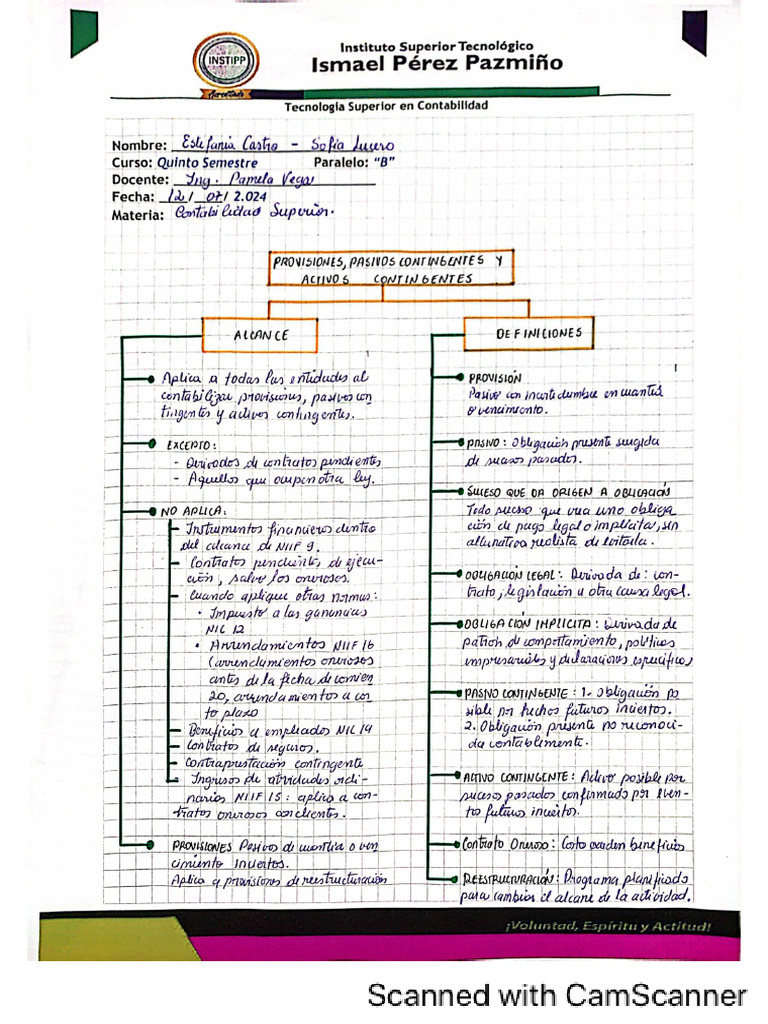 INSTIPP
Acreditado
Instituto Superior Tecnológico
Ismael Pérez Pazmiño
Tecnología Superior en Contabilidad
Nombre: Estefanía Castro - Sofía Lucero
Curso: Quinto Semestre Paralelo: "B"
Docente: Ing. Pamela Vega
Fecha: 12 / 07 / 2.024
Materia: Contabilidad Superior.
PROVISIONES, PASIVOS CONTINGENTES Y
ACTIVOS CONTINGENTES
ALCANCE
Aplica a todas las entidades al
contabilizar, provisiones, pasivos con
tingentes y activos contingentes.
EXCEPTO:
- Derivados de contratos pendientes
- Aquellos que ocupen otra ley.
NO APLICA:
- Instrumentos financieros dentro
del alcance de NIIF 9.
- Contratos pendientes de ejecu-
ción, salvo los onerosos.
- Cuando aplique otras normas:
• Impuesto a las ganancias
NIC 12
• Arrendamientos NIIF 16
(arrendamientos onerosos
antes de la fecha de comien
zo, arrendamientos a cor
to plazo
- Beneficios a empleados NIC 19
- Contratos de seguros.
- Contraprestación contingente
- Ingresos de atividades ordi-
narias NIIF 15: aplica a con-
tratos onerosos con clientes.
PROVISIONES Pasivos de cuantía o ven
cimiento inciertos.
Aplica a provisiones de reestructuración
DEFINICIONES
PROVISIÓN
Pasivo con incertidumbre en cuantía
o vencimiento.
PASIVO: Obligación presente surgida
de sucesos pasados.
SUCESO QUE DA ORIGEN A OBLIGACIÓN
Todo suceso que crea una obliga
ción de pago legal o implícita, sin
alternativa realista de evitarla.
OBLIGACIÓN LEGAL: Derivada de: con-
trato, legislación u otra causa legal.
OBLIGACIÓN IMPLÍCITA: Derivada de
patrón de comportamiento, políticas
empresariales y declaraciones específicas
PASIVO CONTINGENTE: 1. Obligación po
sible por hechos futuros inciertos.
2. Obligación presente no reconoci-
da contablemente.
ACTIVO CONTINGENTE: Activo posible por
sucesos pasados confirmado por even-
tos futuros inciertos.
Contrato Oneroso: Costo exceden beneficios
REESTRUCTURACIÓN: Programa planificado
para cambiar el alcance de la actividad.
¡Voluntad, Espíritu y Actitud!
Scanned with CamScanner